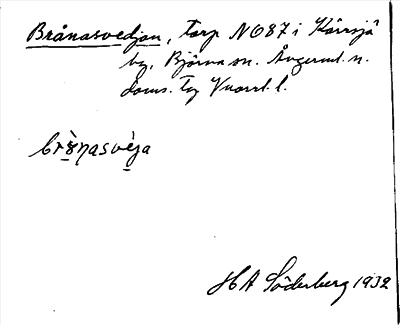 Brånasvedjan, Torp NO87 i Kärrsjö
by, Björna sn. Ångerml. n.
doms. Tg Vnorrl. l.
br8̀nasvèja
HA Söderberg 1932